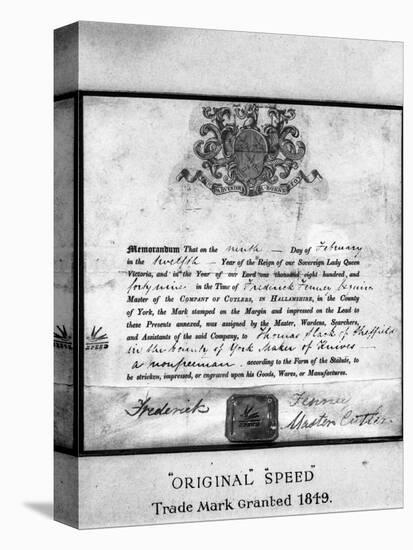 Memorandum That on the ninth — Day of February
in the twelfth — Year of the Reign of our Sovereign Lady Queen
Victoria, and in the Year of our Lord one thousand eight hundred, and
forty nine — in the Time of Frederick Fenney Esquire
Master of the COMPANY OF CUTLERS, IN HALLAMSHIRE, in the County
of York, the Mark stamped on the Margin and impressed on the Lead to
these Presents annexed, was assigned by the Master, Wardens, Searchers,
and Assistants of the said Company, to Thomas Slack of Sheffield
in the County of York Maker of Knives —
a nonfreeman — according to the Form of the Statute, to
be stricken, impressed, or engraved upon his Goods, Wares, or Manufactures.
Frederick Fenney
Master Cutler
"ORIGINAL" "SPEED"
Trade Mark Granted 1849.